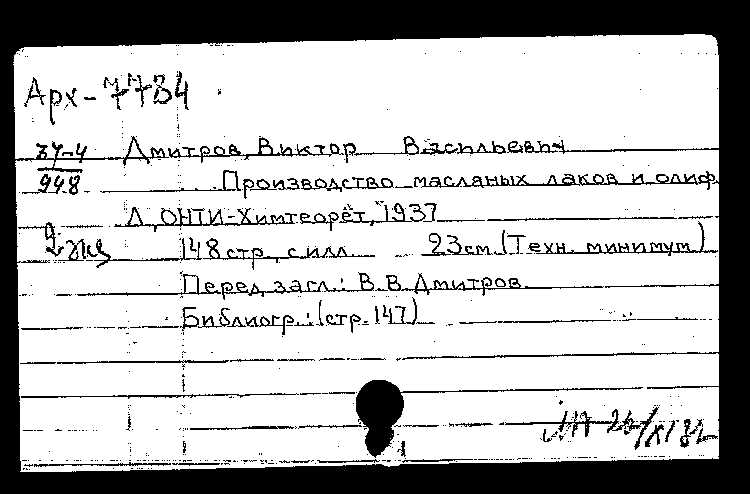 Арх-7784
37-4 Дмитров, Виктор Васильевич
948 Производство масляных лаков и олиф.
Л, ОНТИ-Химтеорёт, 1937
2 экз 148 стр, с илл. 23см (Техн. минимум)
Перед загл.: В.В.Дмитров.
Библиогр.:(стр.147)